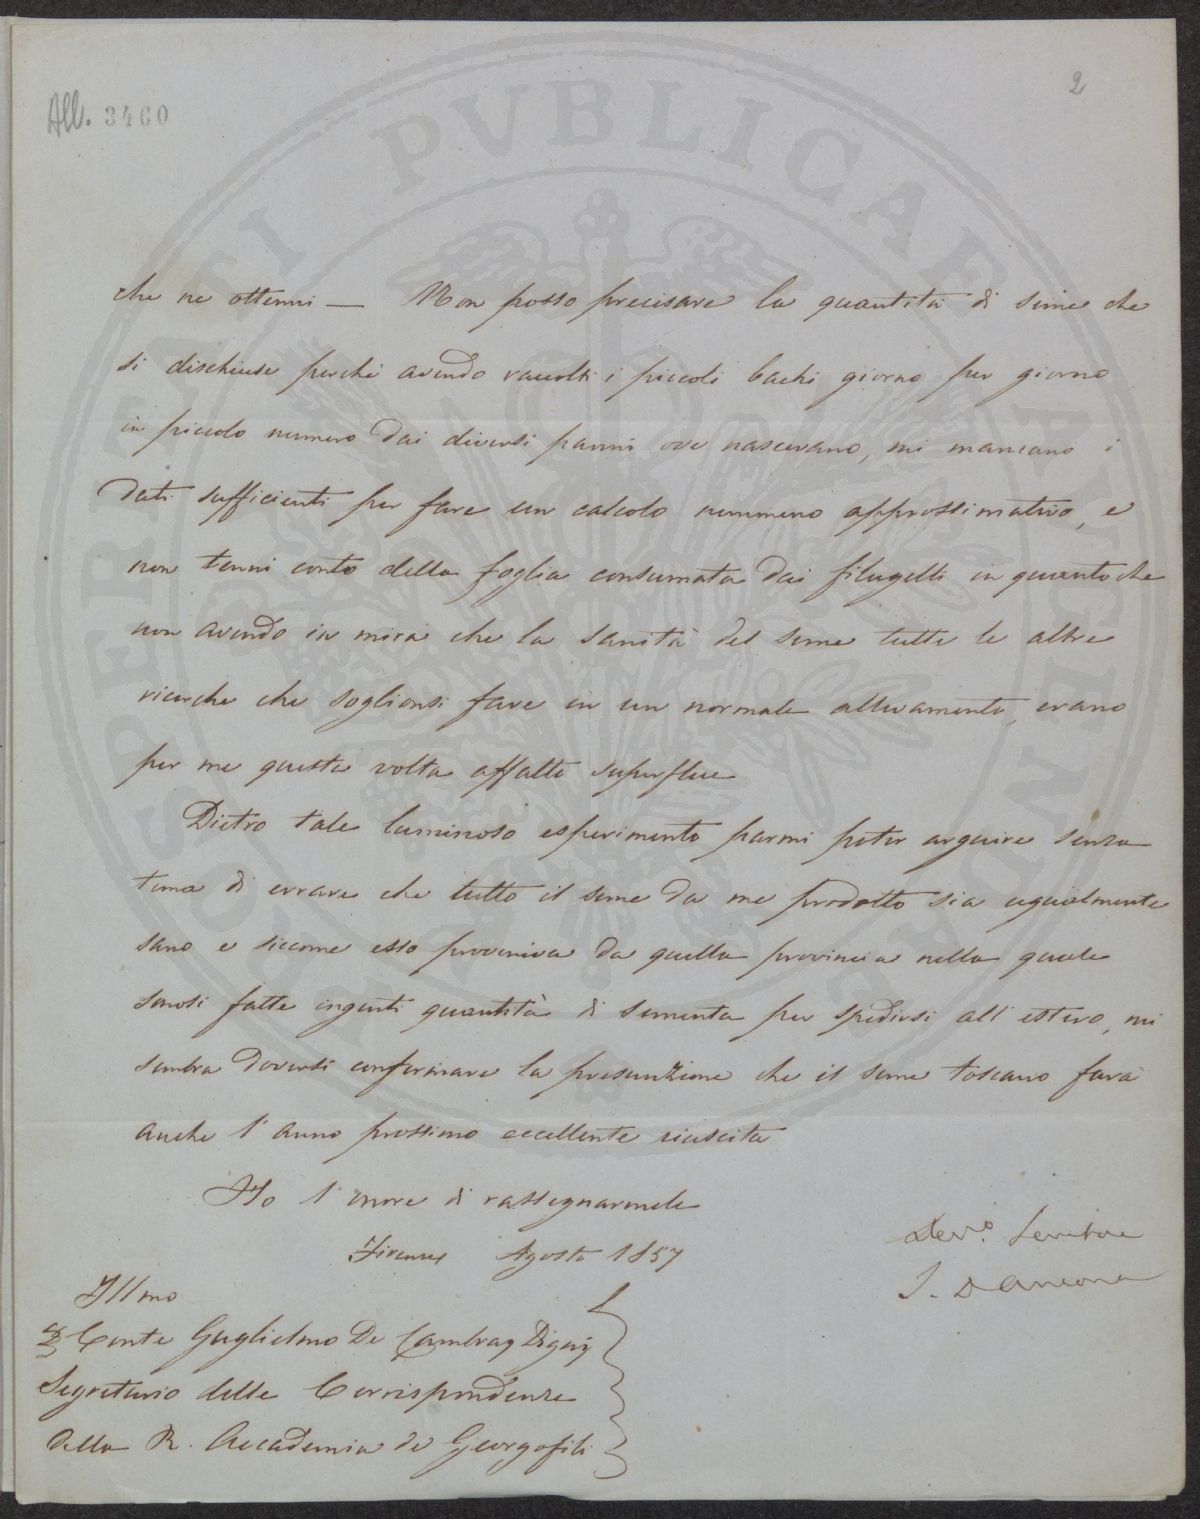 2
All. 3460
che ne ottenni — Non posso precisare la quantità di seme che
si dischiuse perchè avendo raccolti i piccoli bachi giorno per giorno
in piccolo numero dai diversi panni ove nascevano, mi mancano i
dati sufficienti per fare un calcolo nemmeno approssimativo, e
non tenni conto della foglia consumata dai filugelli in quanto che
non avendo in mira che la sanità del seme tutte le altre
ricerche che soglionsi fare in un normale allevamento, erano
per me questa volta affatto superflue
Dietro tale luminoso esperimento parmi poter arguire senza
tema di errare che tutto il seme da me prodotto sia ugualmente
sano e siccome esso proveniva da quella provincia nella quale
sonosi fatte ingenti quantità di sementa per spedirsi all'estero, mi
sembra doversi confermare la presunzione che il seme toscano farà
anche l'anno prossimo eccellente riuscita
Ho l'onore di rassegnarmele
Firenze Agosto 1857
Dev.o Servitore
S. D'Ancona
Illmo
Conte Guglielmo De Cambray Digny
Segretario delle Corrispondenze
della R. Accademia de Georgofili
PROSPERITATI PVBLICAE AVGENDAE